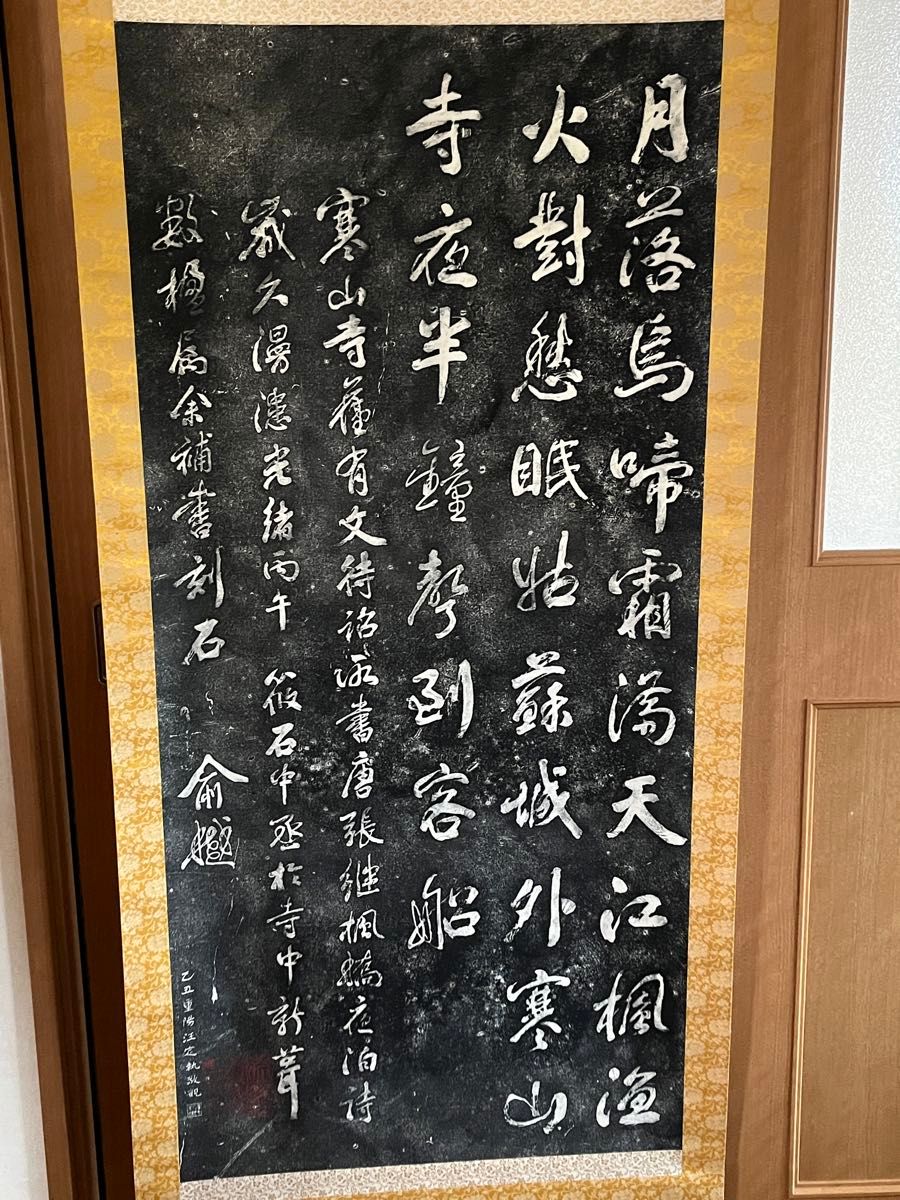 月落烏啼霜滿天江楓漁
火對愁眠姑蘇城外寒山
寺夜半鐘聲到客船
寒山寺舊有文待詔所書唐張繼楓橋夜泊詩
歲久漫漶光緒丙午筱石中丞於寺中新葺
數楹屬余補書刻石
俞樾
乙丑重陽江定執敬